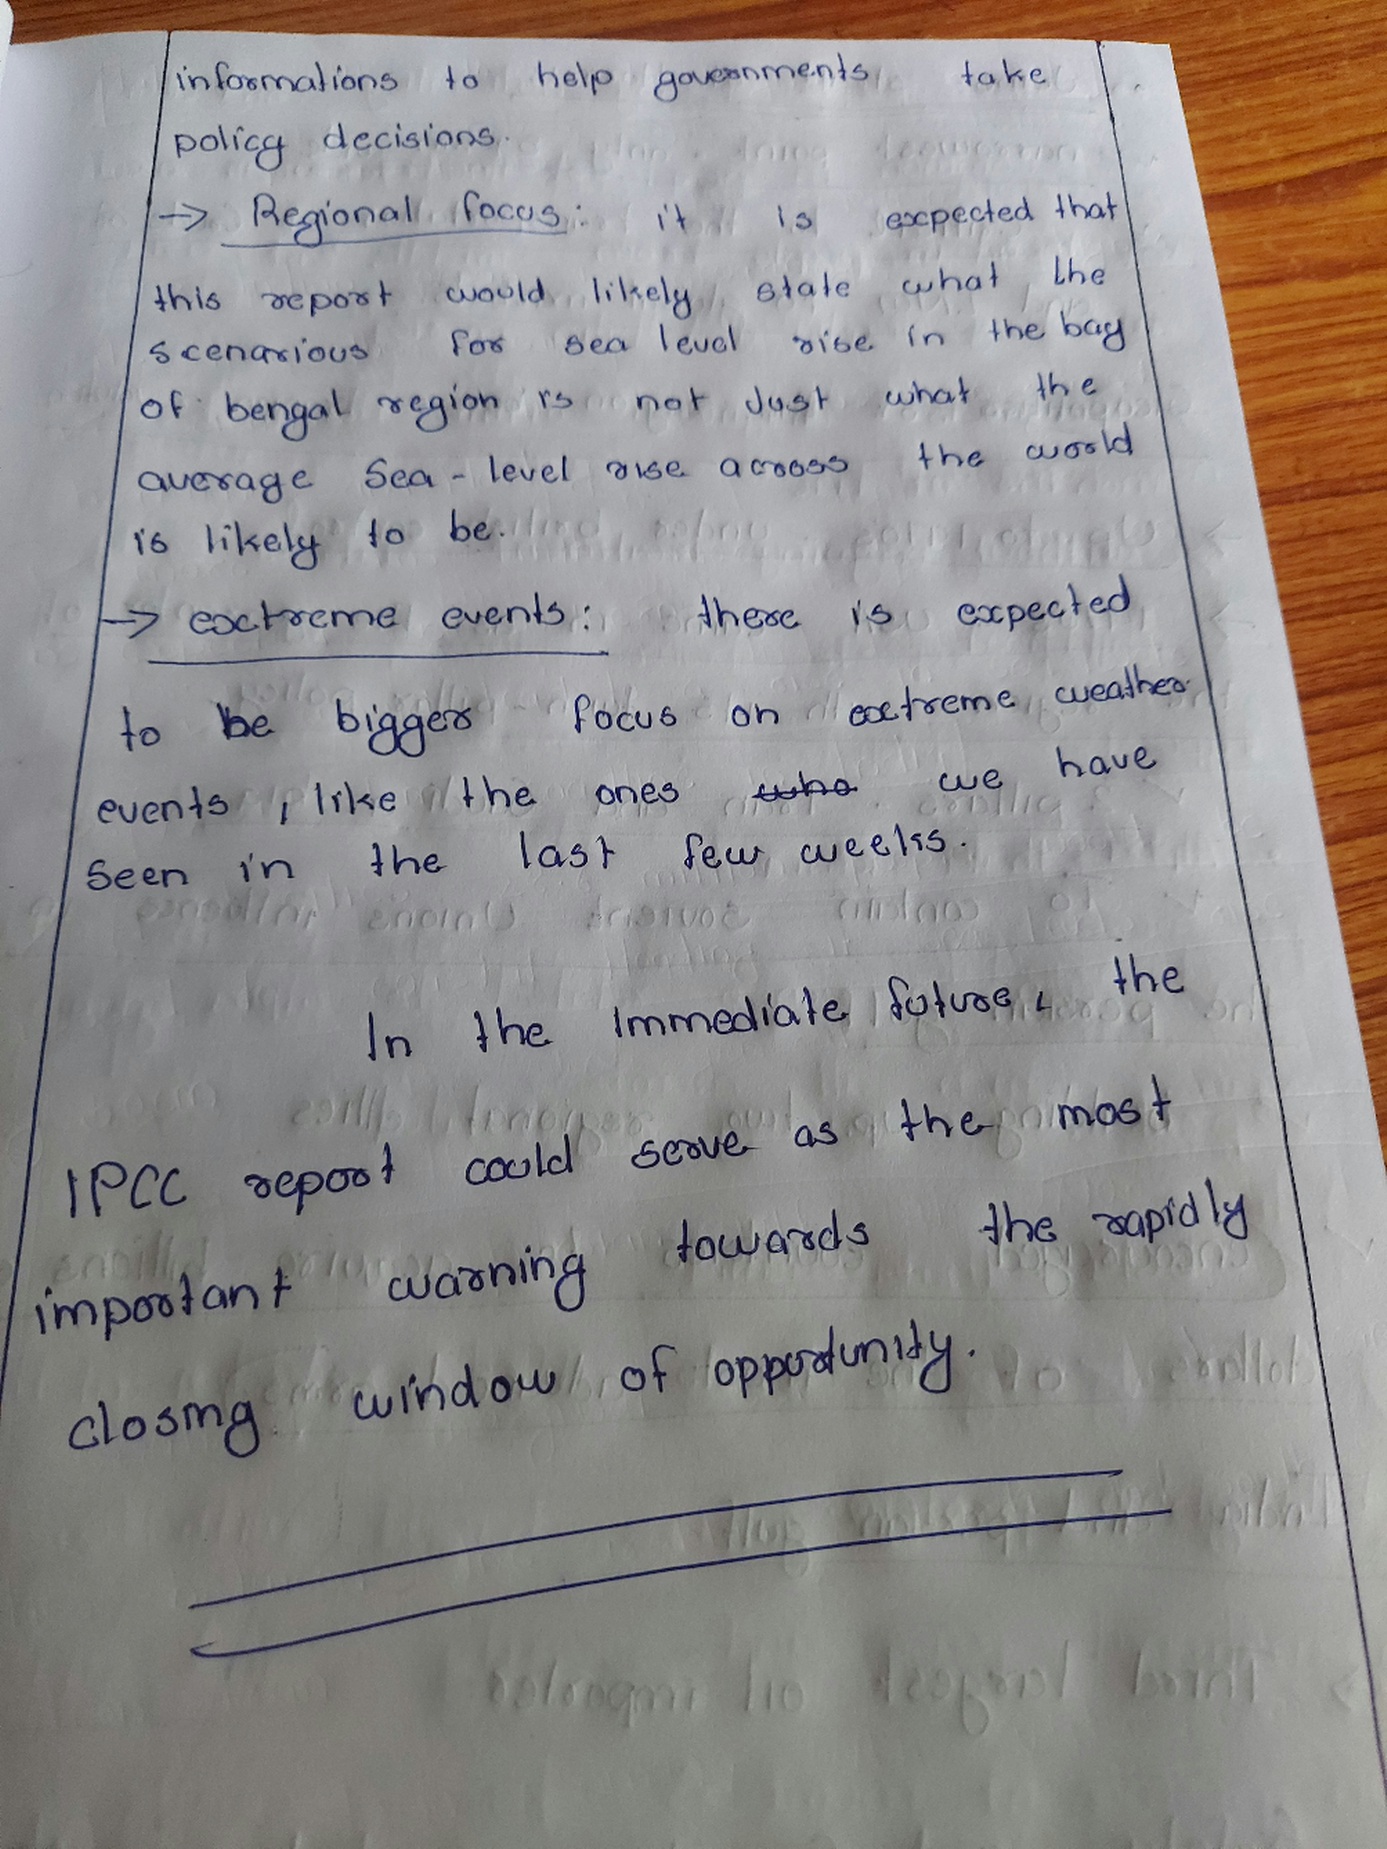 informations to help governments take
policy decisions.
→ Regional focus: it is expected that
this report would likely state what the
scenarious for sea level rise in the bay
of bengal region is not Just what the
average Sea-level rise across the world
is likely to be.
→ extreme events: there is expected
to be bigger focus on extreme weather
events, like the ones who we have
Seen in the last few weeks.
In the Immediate future, the
IPCC report could serve as the most
important warning towards the rapidly
closing window of opportunity.